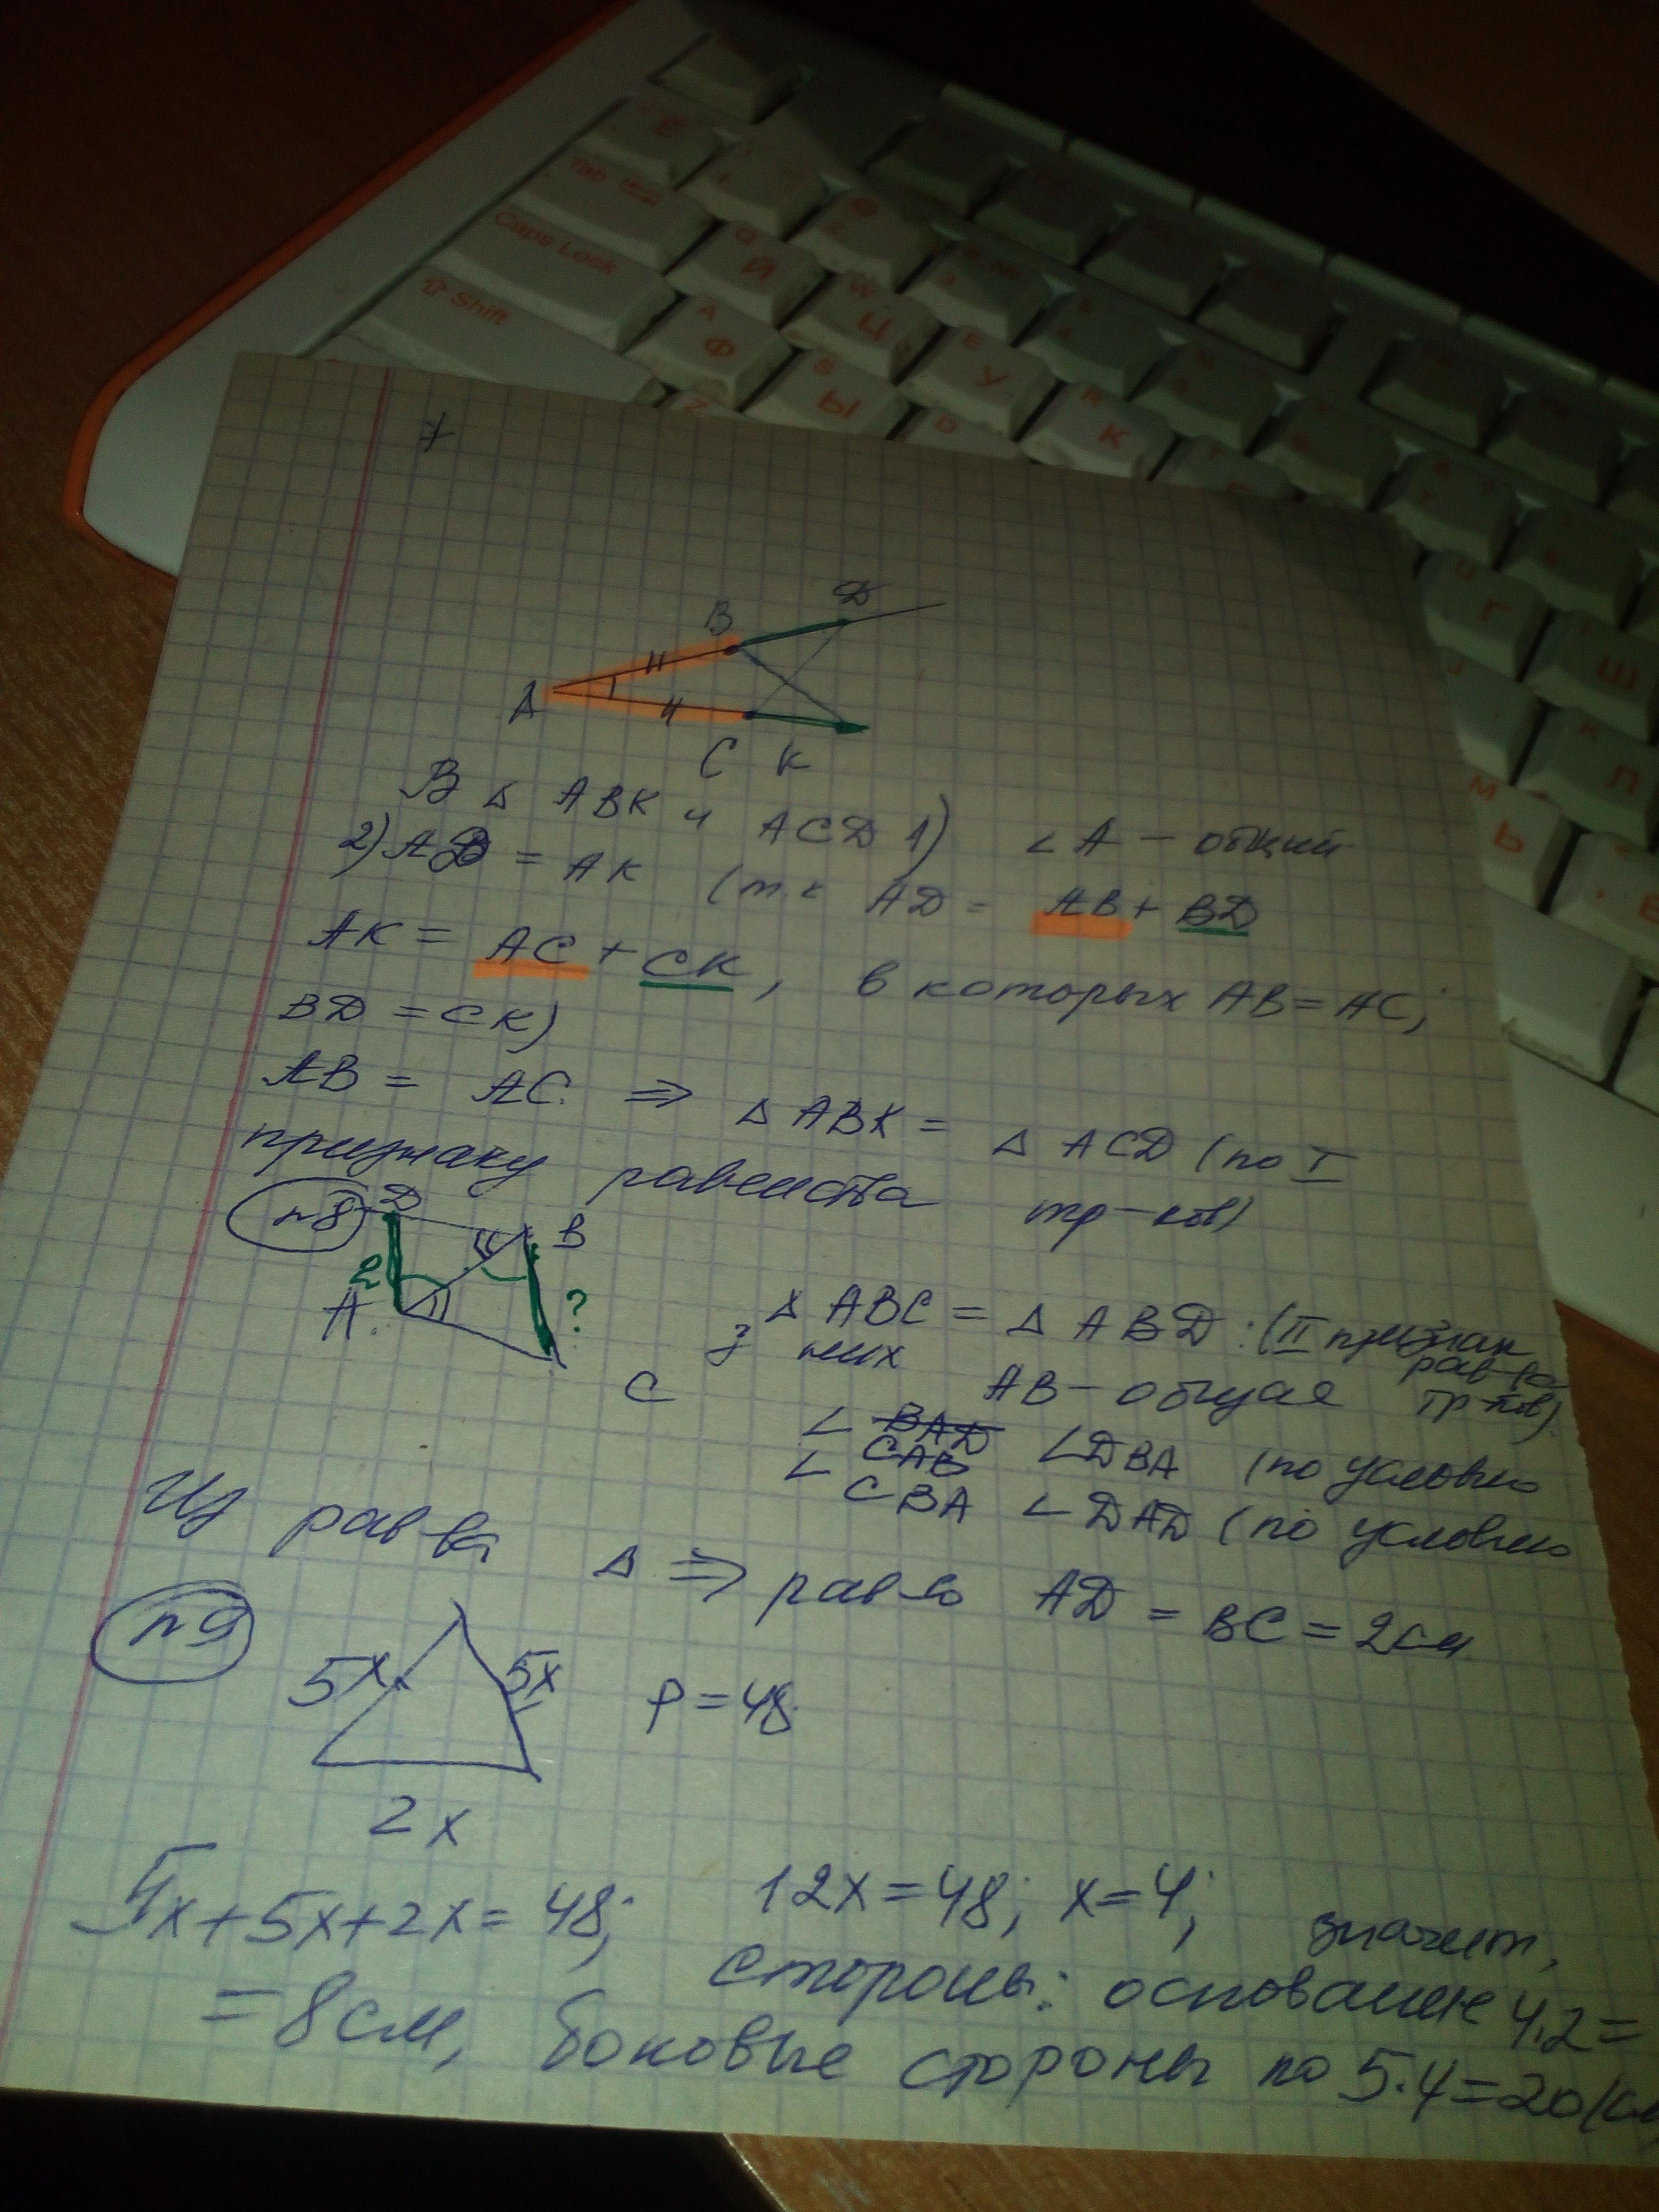 Tab
Caps Lock
Shift
Q Й
W Ц
E У
R К
A Ф
S Ы
Z
7
B
D
A
C K
В △ ABK и ACD 1) ∠A - общий
2) AD = AK (т.к AD = AB + BD
AK = AC + CK, в которых AB = AC;
BD = CK)
AB = AC. ⇒ △ABK = △ACD (по I
признаку равенства тр-ков)
n8
D
B
2
A
?
C
△ABC = △ABD : (II признак
рав-ва
тр-ков)
них AB - общая
∠ BAD
∠ CAB ∠DBA (по условию
CBA ∠DAD (по условию
Из рав-ва △ ⇒ рав-во AD = BC = 2см
n9
5x
5x
P = 48.
2x
5x+5x+2x = 48; 12x = 48; x = 4; значит,
стороны: основание 4.2 =
= 8 см, боковые стороны по 5.4 = 20 (см